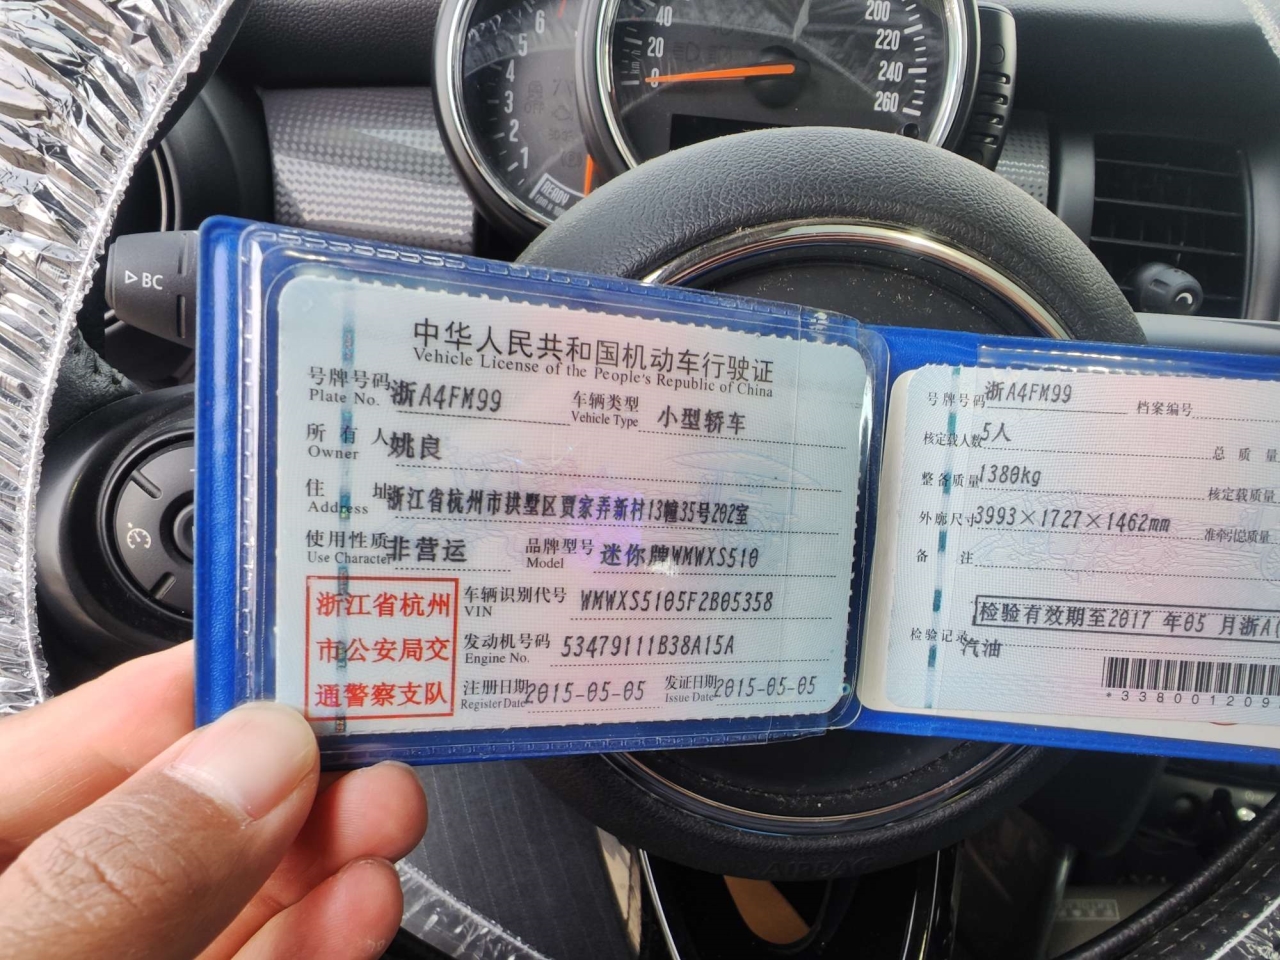 6
5
4
3
2
1
READY
40
20
0
km/h
200
220
240
260
BC
中华人民共和国机动车行驶证
Vehicle License of the People's Republic of China
号牌号码 浙A4FM99 车辆类型 小型轿车
Plate No. Vehicle Type
所有人 姚良
Owner
住址 浙江省杭州市拱墅区贾家弄新村13幢35号202室
Address
使用性质 非营运 品牌型号 迷你牌WMWXS510
Use Character Model
浙江省杭州
市公安局交
通警察支队
车辆识别代号 WMWXS5105F2B05358
VIN
发动机号码 53479111B38A15A
Engine No.
注册日期 2015-05-05 发证日期 2015-05-05
Register Date Issue Date
号牌号码 浙A4FM99 档案编号
核定载人数 5人 总质量
整备质量 1380kg 核定载质量
外廓尺寸 3993×1727×1462mm 准牵引总质量
备注
检验有效期至2017 年05 月浙A(
检验记录
汽油
*338001209
AIRBAG